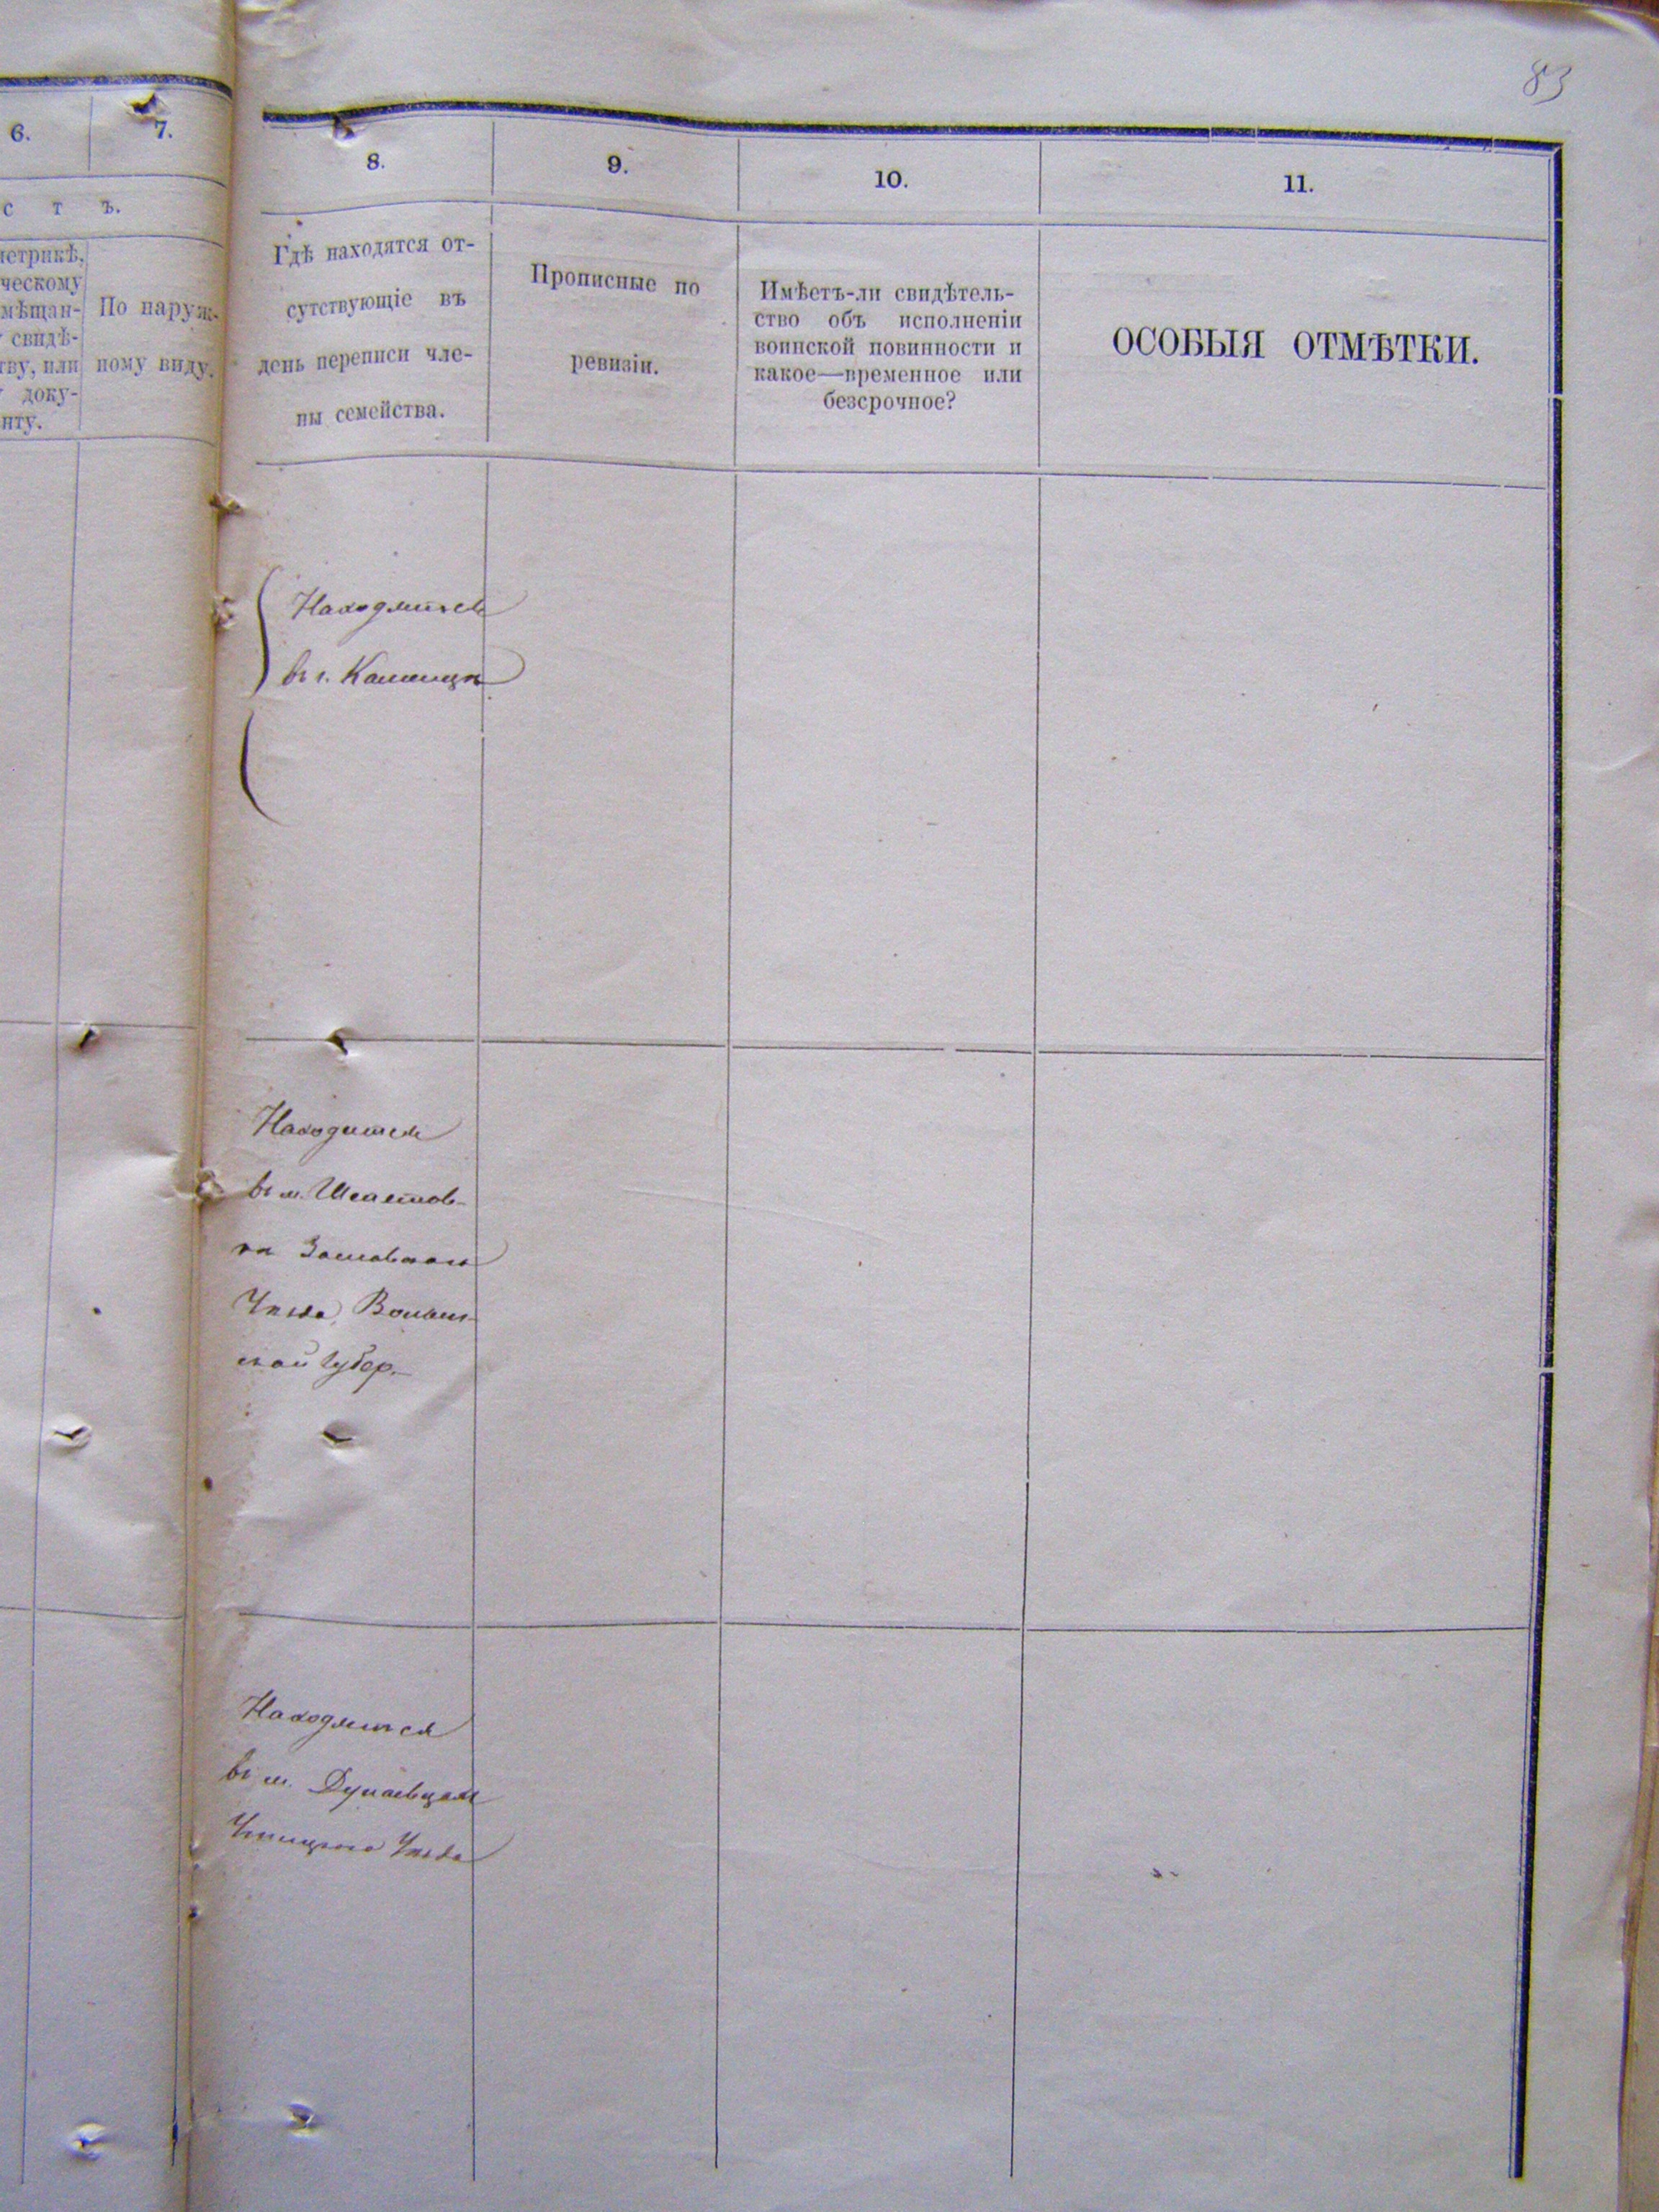 83
6.
7.
с т ъ.
метрикѣ,
ческому
мѣщан-
свидѣ-
тву, или
доку-
нту.
По наруж-
ному виду.
8.
9.
10.
11.
Гдѣ находятся от-
сутствующіе въ
день переписи чле-
ны семейства.
Прописные по
ревизіи.
Имѣетъ-ли свидѣтель-
ство объ исполненіи
воинской повинности и
какое—временное или
безсрочное?
ОСОБЫЯ ОТМѢТКИ.
Находятся
въ г. Каменцѣ
Находится
въ м. Шепетов-
кѣ Заславскаго
Уѣзда Волын-
ской Губер.
Находятся
въ м. Дунаевцахъ
Ушицкаго Уѣзда